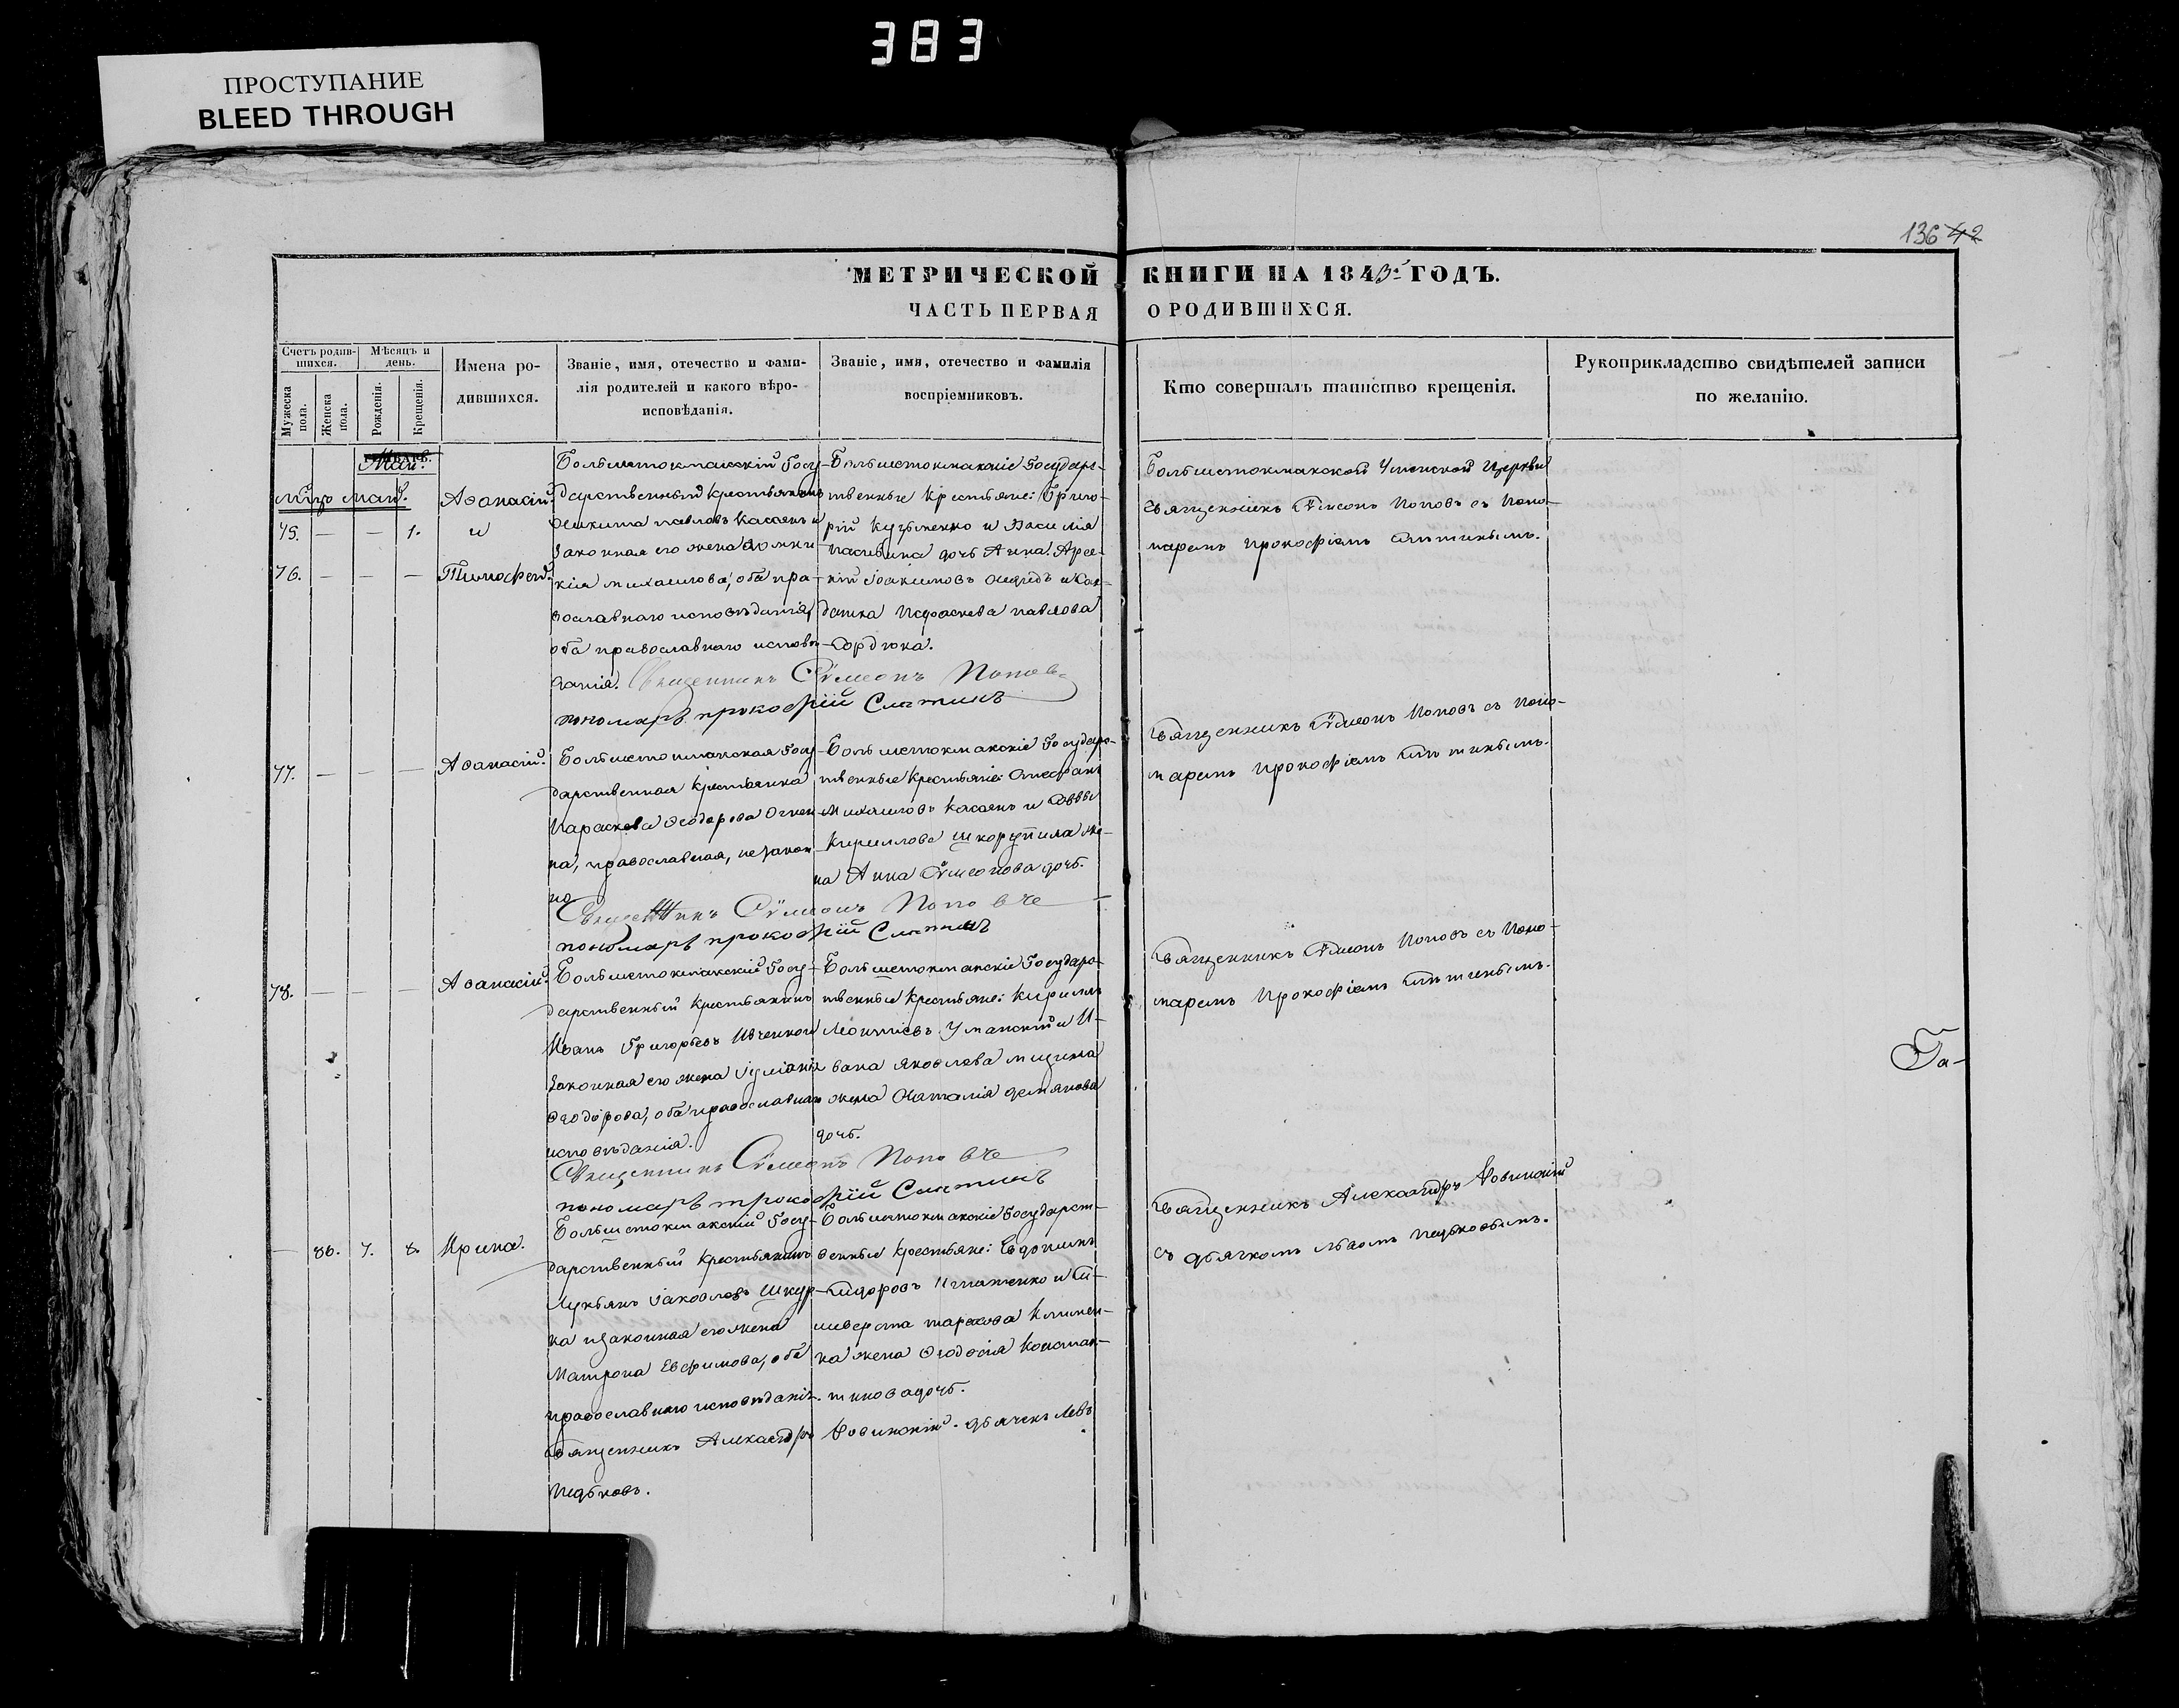 383
ПРОСТУПАНИЕ
BLEED THROUGH
136 42
МЕТРИЧЕСКОЙ КНИГИ НА 1843 ГОДЪ.
ЧАСТЬ ПЕРВАЯ О РОДИВШИХСЯ.
Счетъ родив-
шихся.
Мужеска
пола.
Женска
пола.
Мѣсяцъ и
день.
Рожденія.
Крещенія.
Имена ро-
дившихся.
Званіе, имя, отечество и фами-
лія родителей и какого вѣро-
исповѣданія.
Званіе, имя, отечество и фамилія
воспріемниковъ.
Кто совершалъ таинство крещенія.
Рукоприкладство свидѣтелей записи
по желанію.
Май.
Мцъ май.
75. — — 1.
Аѳанасій
и
76. — — —
Тимофей.
Большетокмакскій Госу-
дарственный крестьянинъ
Никита Павловъ Касьянъ и
законная его жена Домни-
кія Михаилова, оба пра-
вославнаго исповѣданія,
оба православнаго исповѣ-
данія. Священникъ Сѵмеонъ Поповъ
пономарь Прокофій Слатинъ
Большетокмакскіе Государс-
твенные крестьяне: Григо-
рій Кузьменко и Василія
дочь Анна. Арсе-
ній Іоакимовъ
Параскева Павлова
Сердюка.
Большетокмакской Успенской Церкви
Священникъ Сѵмеонъ Поповъ съ Поно-
маремъ Прокофіемъ Слатинымъ.
77. — — —
Аѳанасій.
Большетокмакская Госу-
дарственная крестьянка
Параскева Ѳеодорова
на, православная, незакон-
но
Священникъ Сѵмеонъ Поповъ
пономарь Прокофій Слатинъ
Большетокмакскіе Государс-
твенные крестьяне: Стефанъ
Михаиловъ Касьянъ и Саввы
Кириллова Шкорупила же-
на Анна Сѵмеонова дочь.
Священникъ Сѵмеонъ Поповъ съ Поно-
маремъ Прокофіемъ Слатинымъ.
78. — — —
Аѳанасій.
Большетокмакскій Госу-
дарственный крестьянинъ
Иванъ Григорьевъ Ивченко и
законная его жена Іуліанія
Ѳеодорова, оба православнаго
исповѣданія.
Священникъ Сѵмеонъ Поповъ
пономарь Прокофій Слатинъ
Большетокмакскіе Государс-
твенные крестьяне: Кириллъ
Леонтіевъ Уманскій и И-
вана Яковлева Мицика
жена Наталія Демянова
дочь.
Священникъ Сѵмеонъ Поповъ съ Поно-
маремъ Прокофіемъ Слатинымъ.
Га-
— 86. 7. 8.
Ирина.
Большетокмакскій Госу-
дарственный крестьянинъ
Лукьянъ Іаковлевъ Шкур-
ка и законная его жена
Матрона Евфимова, оба
православнаго исповѣданія.
Священникъ Александръ
дьячекъ Левъ
Педьковъ.
Большетокмакскіе Государст-
венные крестьяне: Евдокимъ
Сидоровъ Игнатенко и Си-
ливерста Тарасова Климен-
ка жена Ѳеодосія Констан-
тинова дочь.
Священникъ Александръ
съ дьячкомъ Львомъ Педьковымъ.